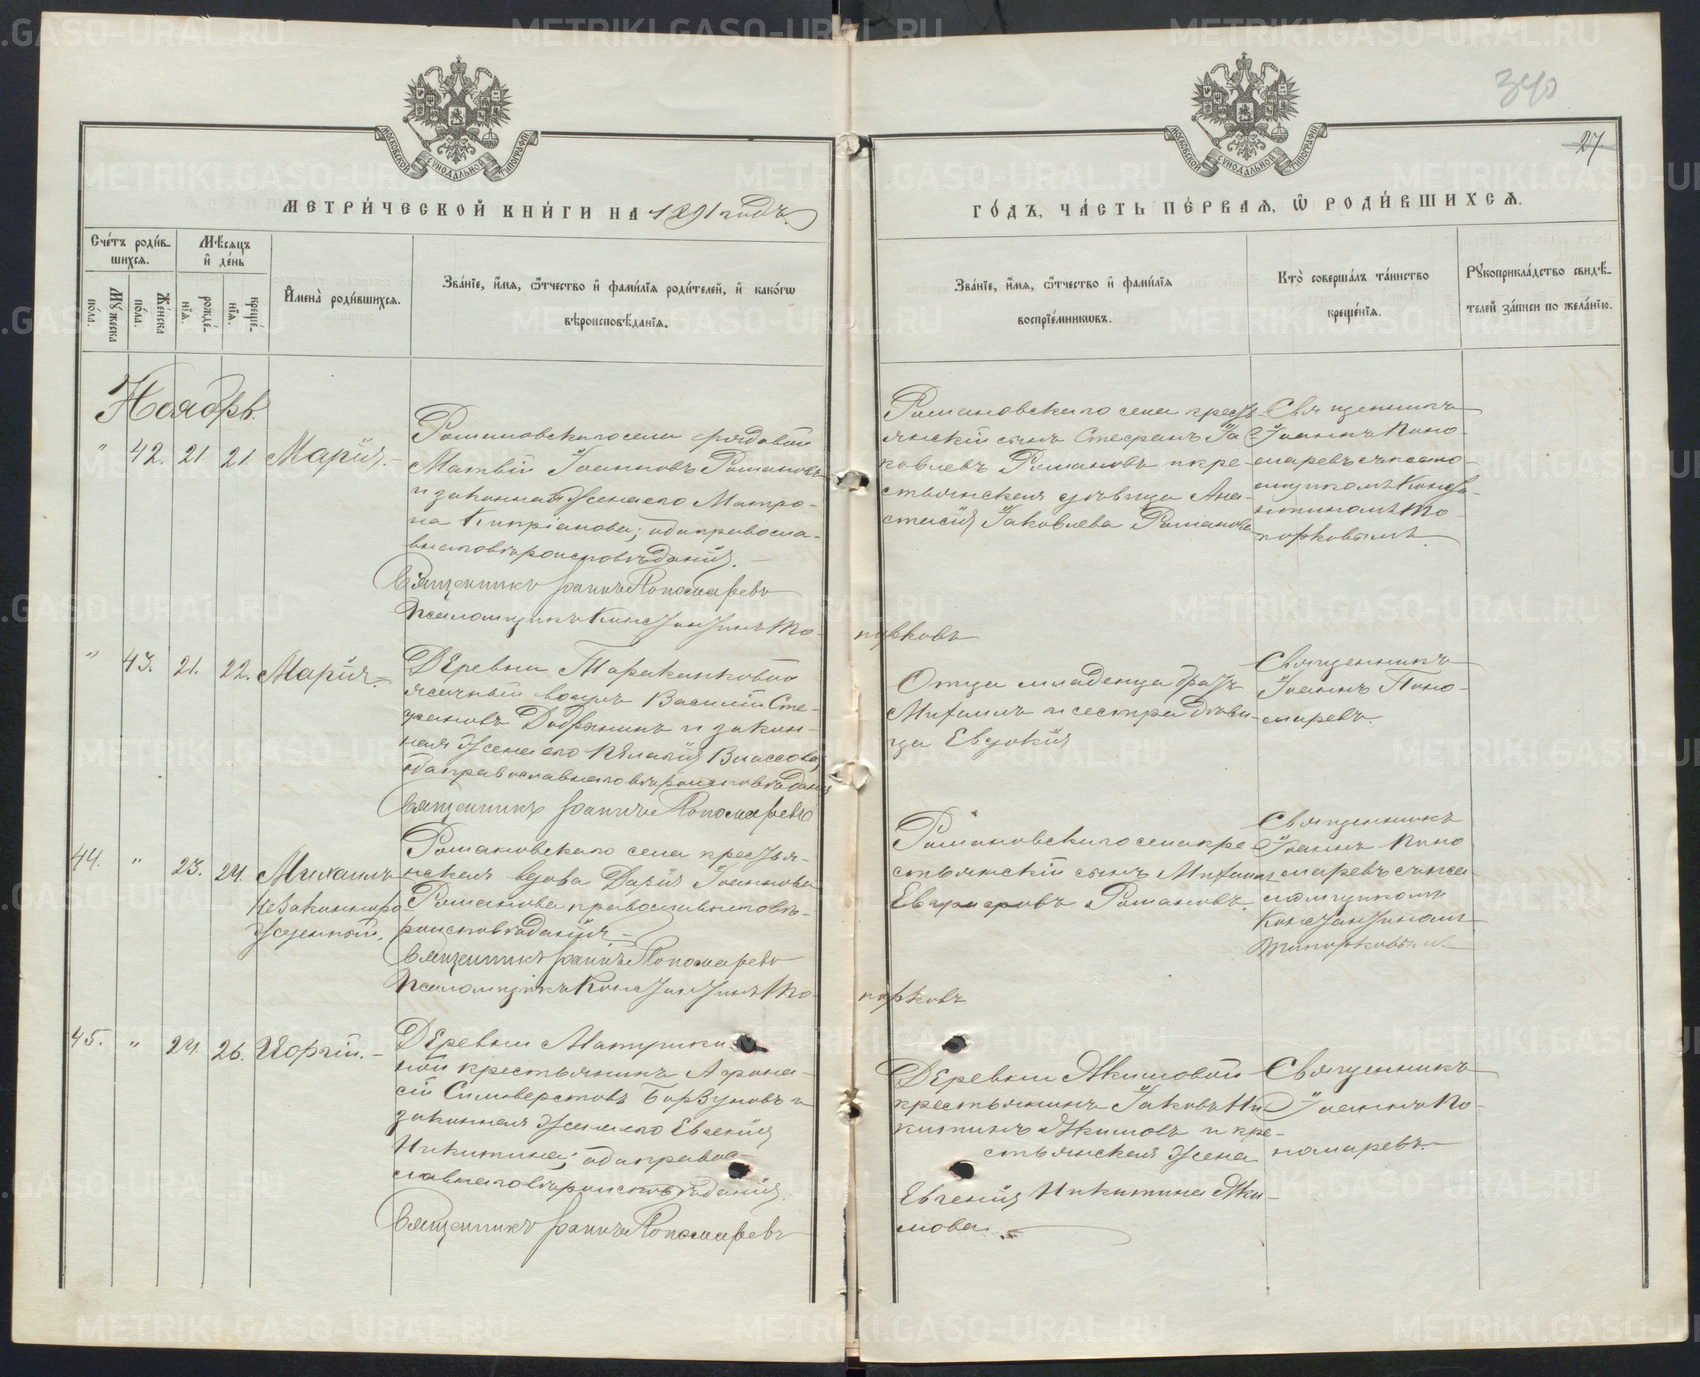 METRIKI.GASO-URAL.RU
340
27.
МОСКОВСКОЙ СУНОДАЛЬНОЙ ТИПОГРАФИИ
МОСКОВСКОЙ СУНОДАЛЬНОЙ ТИПОГРАФИИ
МЕТРИ́ЧЕСКОЙ КНИ́ГИ НА 1891 годъ.
ГО́ДЪ, ЧА́СТЬ ПЕ́РВАѦ, Ѿ РОДИ́ВШИХСѦ.
Сче́тъ роди́в-
шихсѧ.
Мꙋ́жеска по́ла.
Же́нска по́ла.
Мѣ́сѧцъ
и҆ де́нь
рожде́-нїѧ.
креще́-нїѧ.
И҆мена̀ роди́вшихсѧ.
Зва́нїе, и҆́мѧ, ѻ҆́тчество и҆ фами́лїѧ роди́телей, и҆ како́гѡ
вѣроисповѣ́данїѧ.
Зва́нїе, и҆́мѧ, ѻ҆́тчество и҆ фами́лїѧ
воспрїе́мникѡвъ.
Кто̀ соверша́лъ та́инство
креще́нїѧ.
Рꙋкоприкла́дство свидѣ́-
телей за́писи по жела́нїю.
Ноябрь.
" 42. 21 21. Марія.
Романовскаго села рядовой
Матвій Іоанновъ Романовъ
и законная жена его Матро-
на Кипріанова; оба правосла-
внаго вѣроисповѣданія.
Священникъ Іоаннъ Пономаревъ
Псаломщикъ Константинъ То-
порковъ
Романовскаго села кресть-
янскій сынъ Стефанъ Іа-
ковлевъ Романовъ и кре-
стьянская дѣвица Ана-
стасія Іаковлева Романова
Священникъ
Іоаннъ Поно-
маревъ съ псало-
мщикомъ Конста-
нтиномъ То-
порковымъ.
" 43. 21. 22. Марія.
Деревни Тараканковой
ясачный вогулъ Василій Сте-
фановъ Добрынинъ и закон-
ная жена его Пелагія Власова,
оба православнаго вѣроисповѣданія
Священникъ Іоаннъ Пономаревъ
Отца младенца братъ
Михаилъ и сестра дѣви-
ца Евдокія
Священникъ
Іоаннъ Поно-
маревъ.
44. " 23. 24. Михаилъ
незаконноро
жденной.
Романовскаго села крестья-
нская вдова Дарія Іоаннова
Романова православнаго вѣ-
роисповѣданія.
Священникъ Іоаннъ Пономаревъ
Псаломщикъ Константинъ То-
порковъ
Романовскаго села кре-
стьянскій сынъ Михаилъ
Евграфовъ Романовъ.
Священникъ
Іоаннъ Поно
маревъ съ пса-
ломщикомъ
Константиномъ
Топорковымъ
45. " 24. 26. Георгій.
Деревни
ной крестьянинъ Афана-
сій Силиверстовъ Борзуновъ и
законная жена его Евгенія
Никитина; оба правос-
лавнаго вѣроисповѣданія.
Священникъ Іоаннъ Пономаревъ
Деревни Якимовой
крестьянинъ Іаковъ Ни
китинъ Якимовъ и кре-
стьянская жена
Евгенія Никитина Яки-
мова.
Священникъ
Іоаннъ По-
номаревъ.